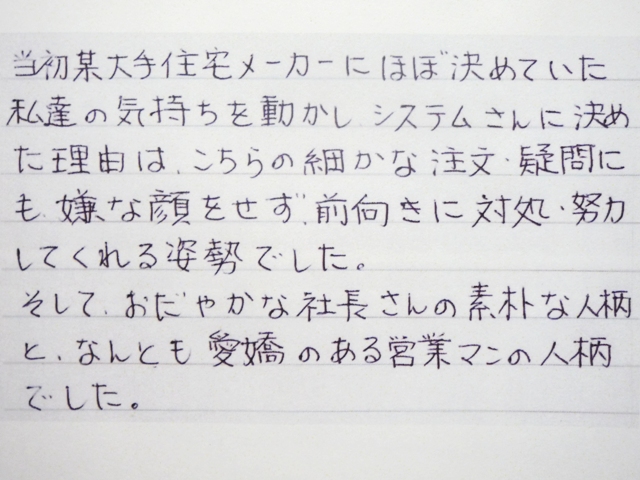 当初某大手住宅メーカーにほぼ決めていた
私達の気持ちを動かし、システムさんに決め
た理由は、こちらの細かな注文・疑問に
も、嫌な顔をせず、前向きに対処・努力
してくれる姿勢でした。
そして、おだやかな社長さんの素朴な人柄
と、なんとも愛嬌のある営業マンの人柄
でした。